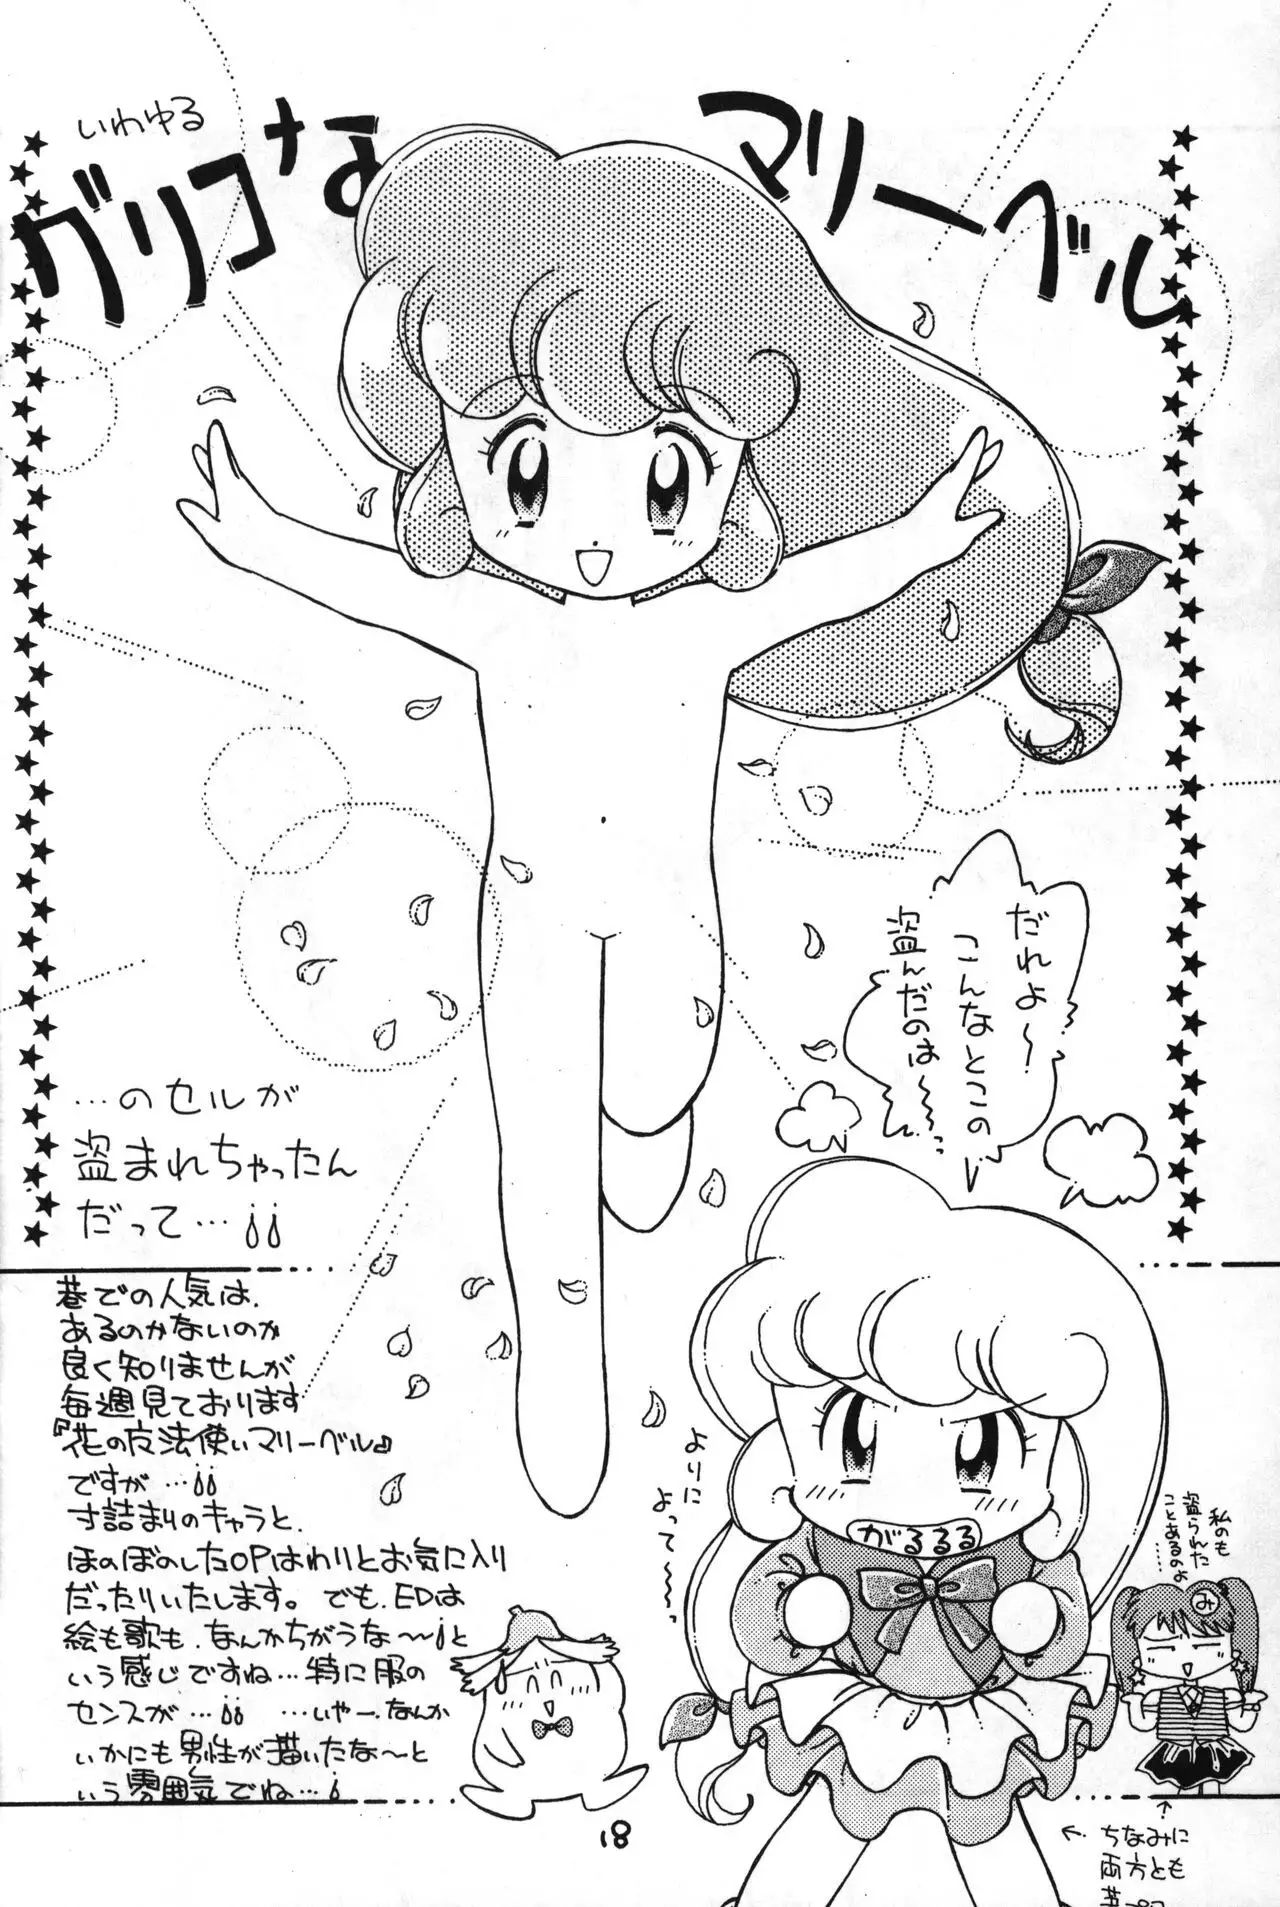 いわゆる
グリコな
マリーベル
だれよ〜!
こんなとこの
盗んだのは〜〜っ
…のセルが
盗まれちゃったん
だって…
巷での人気は、
あるのかないのか
良く知りませんが
毎週見ております
『花の魔法使いマリーベル』
ですが…
寸詰まりのキャラと、
ほのぼのしたOPはわりとお気に入り
だったりいたします。でも、EDは
絵も歌も、なんかちがうな〜と
いう感じですね…特に服の
センスが… …いやー、なんか
いかにも男性が描いたな〜と
いう雰囲気でね…
よりに
よって〜〜っ
がるるる
私のも
盗られた
ことあるのよ
……
み
← ちなみに
両方とも
18